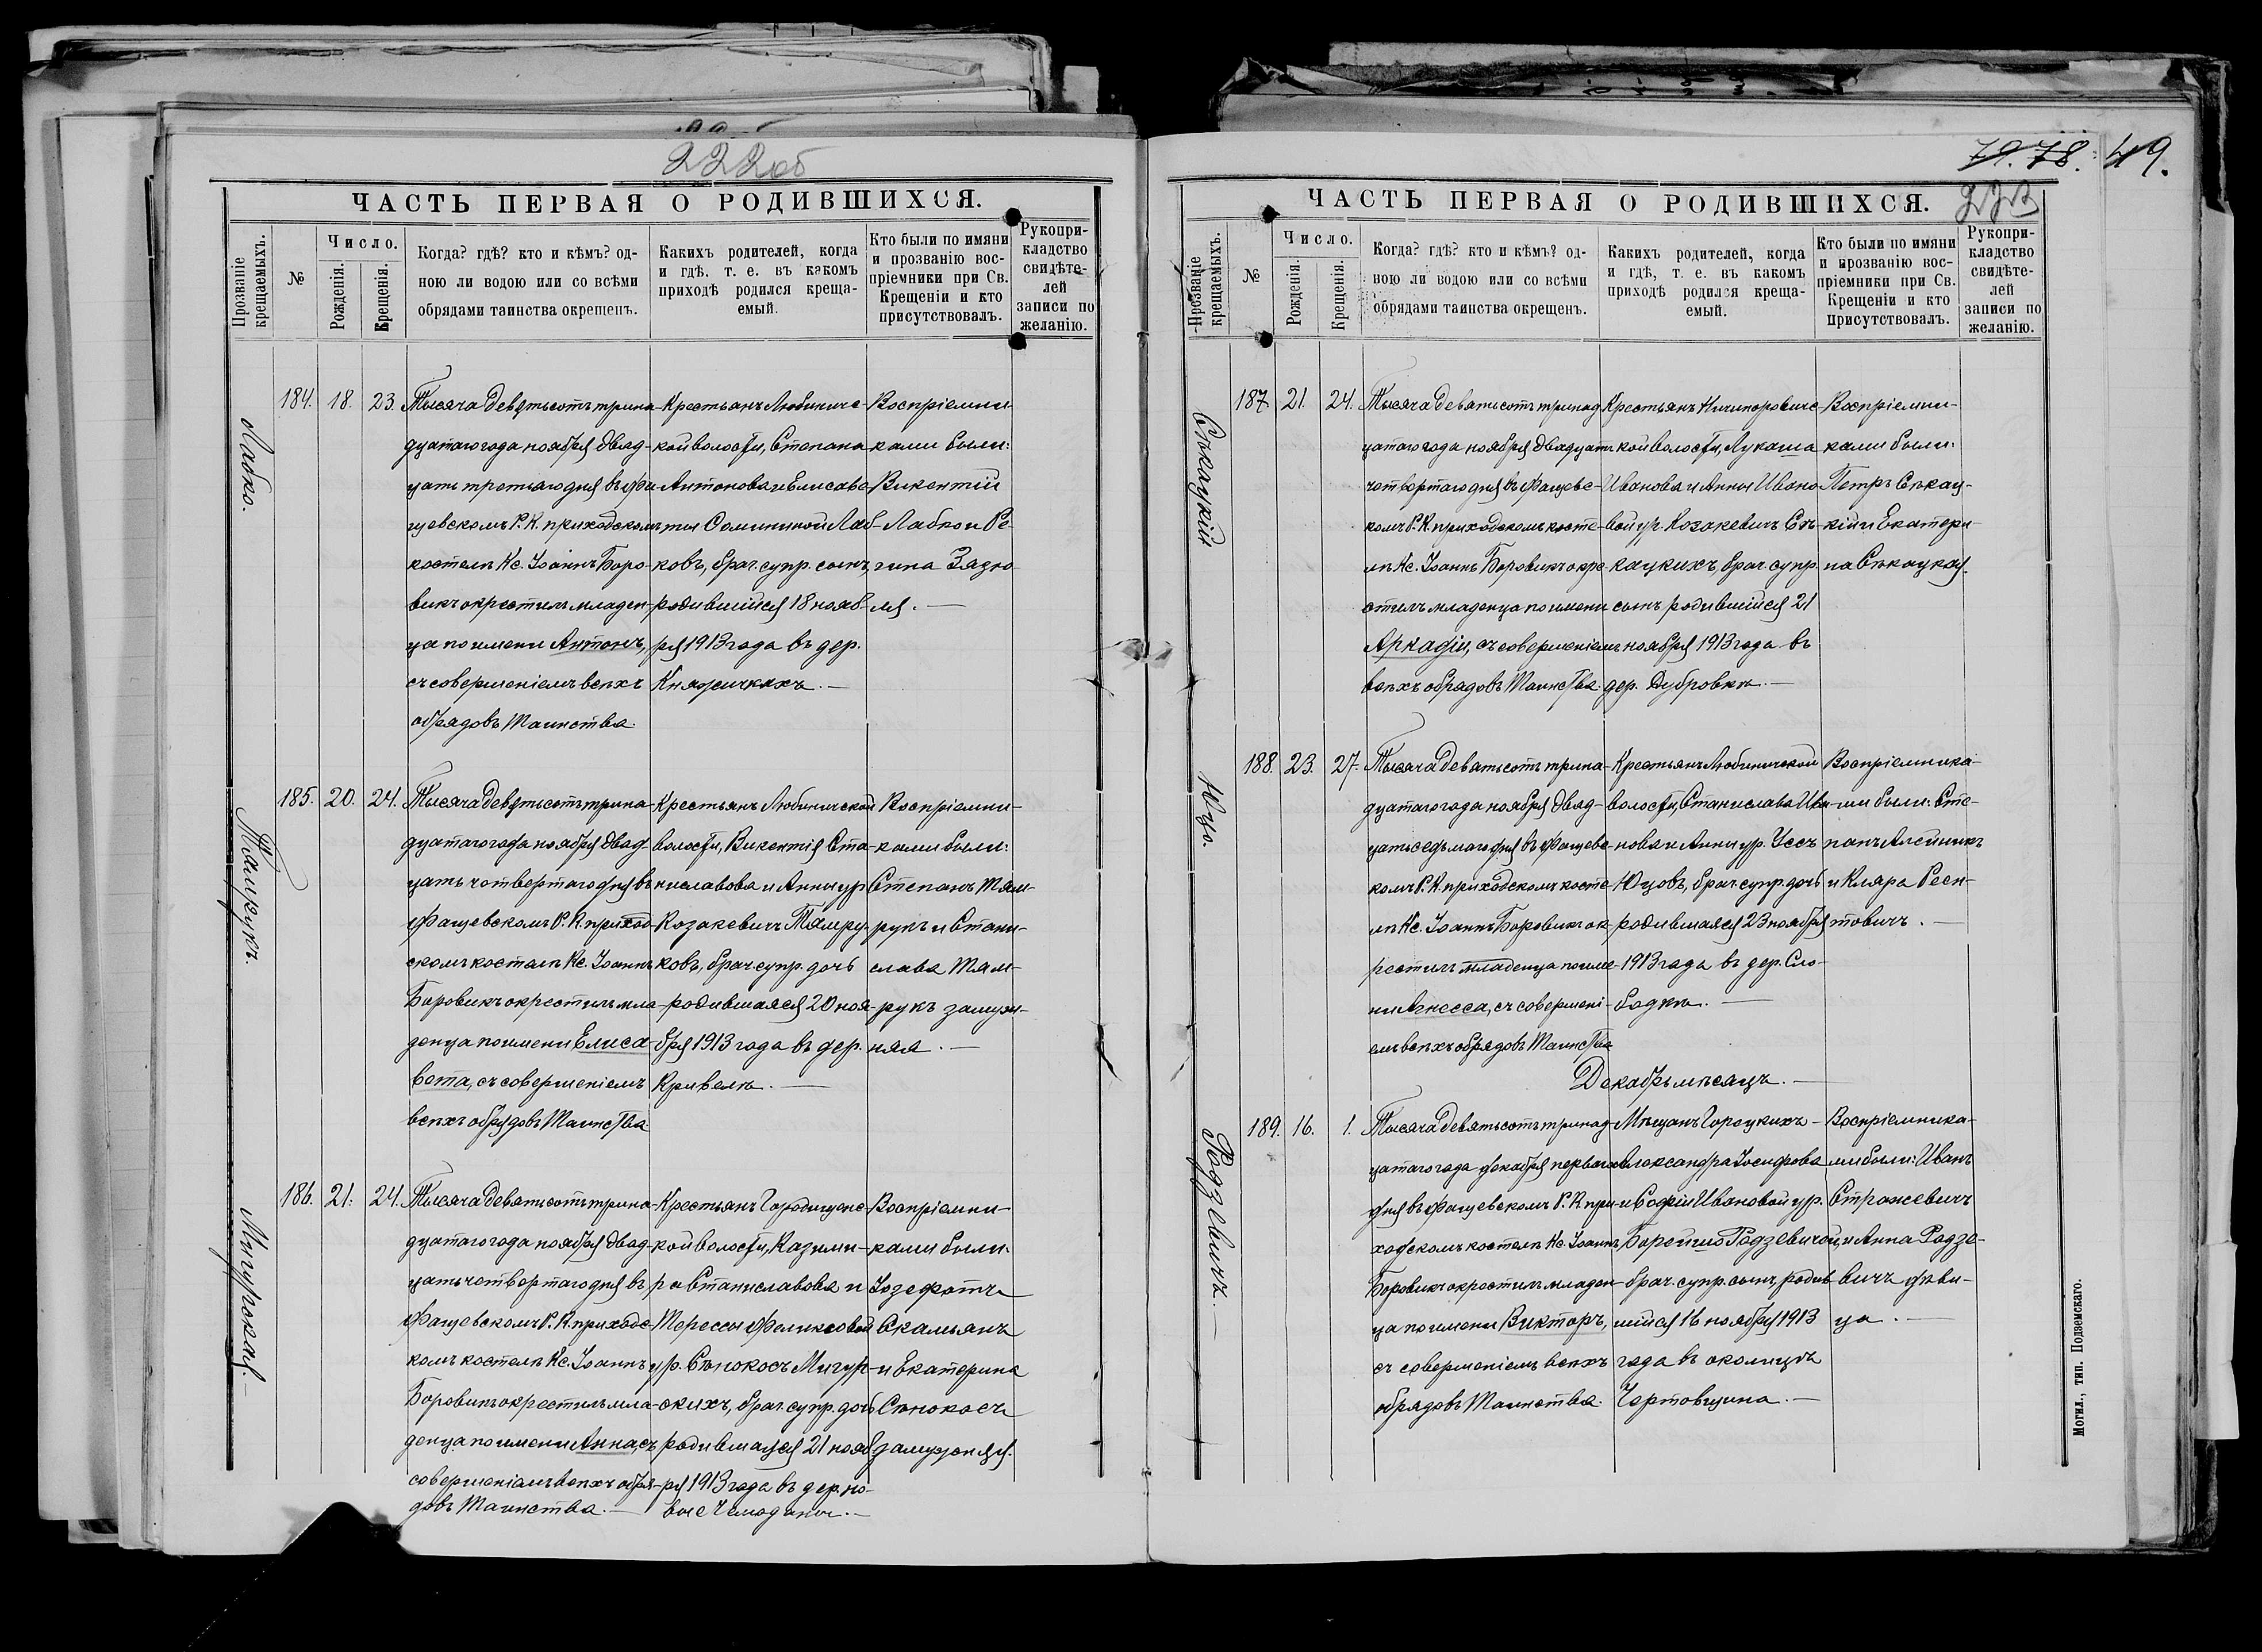 222об
ЧАСТЬ ПЕРВАЯ О РОДИВШИХСЯ.
Прозваніе крещаемыхъ.
№
Число.
Рожденія.
Крещенія.
Когда? гдѣ? кто и кѣмъ? од-
ною ли водою или со всѣми
обрядами таинства окрещенъ.
Какихъ родителей, когда
и гдѣ, т. е. въ какомъ
приходѣ родился креща-
емый.
Кто были по имяни
и прозванію вос-
пріемники при Св.
Крещеніи и кто
присутствовалъ.
Рукопри-
кладство
свидѣте-
лей
записи по
желанію.
Лабко.
184. 18. 23.
Тысяча девятьсотъ трина-
дцатаго года ноября двад-
цать третьяго дня въ Фа-
щевскомъ Р. К. приходскомъ
костелѣ Кс. Іоаннъ Боро-
викъ окрестилъ младен-
ца по имени Антонъ,
съ совершеніемъ всѣхъ
обрядовъ Таинства.
Крестьянъ Любиничс-
кой волости, Степана
Антонова и Елисаве-
ты Лаб-
ковъ, брач. супр. сынъ,
родившійся 18 нояб-
ря 1913 года въ дер.
Княжичкахъ.—
Воспріемни-
ками были:
Викентій
Лабко и Ре-
гина Зядю-
ля.—
Тамрукъ.
185. 20. 24.
Тысяча девятьсотъ трина-
дцатаго года ноября двад-
цать четвертаго дня въ
Фащевскомъ Р. К. приход-
скомъ костелѣ Кс. Іоаннъ
Боровикъ окрестилъ мла-
денца по имени Елиса-
вета, съ совершеніемъ
всѣхъ обрядовъ Таинства.
Крестьянъ Любиничской
волости, Викентія Ста-
ниславова и Анны ур.
Козакевичъ Тамру-
ковъ, брач. супр. дочь
родившаяся 20 ноя-
бря 1913 года въ дер.
Кривелѣ.—
Воспріемни-
ками были:
Степанъ Там-
рукъ и Стани-
слава Там-
рукъ замуж-
няя.—
Мигурская.—
186. 21. 24.
Тысяча девятьсотъ трина-
дцатаго года ноября двад-
цать четвертаго дня въ
Фащевскомъ Р. К. приходс-
комъ костелѣ Кс. Іоаннъ
Боровикъ окрестилъ мла-
денца по имени Анна, съ
совершеніемъ всѣхъ обря-
довъ Таинства.—
Крестьянъ Городищенс-
кой волости, Казими-
ра Станиславова и
Терессы Феликсовой
ур. Сѣнокосъ Мигур-
скихъ, брач. супр. дочь
родившаяся 21 нояб-
ря 1913 года въ дер. Но-
вые Чемоданы.—
Воспріемни-
ками были:
Іозефатъ
Скальянъ
и Екатерина
Сѣнокосъ
замужняя.
79. 78. 49.
223
ЧАСТЬ ПЕРВАЯ О РОДИВШИХСЯ.
Прозваніе крещаемыхъ.
№
Число.
Рожденія.
Крещенія.
Когда? гдѣ? кто и кѣмъ? од-
ною ли водою или со всѣми
обрядами таинства окрещенъ.
Какихъ родителей, когда
и гдѣ, т. е. въ какомъ
приходѣ родился креща-
емый.
Кто были по имяни
и прозванію вос-
пріемники при Св.
Крещеніи и кто
присутствовалъ.
Рукопри-
кладство
свидѣте-
лей
записи по
желанію.
Сѣкацкій
187. 21. 24.
Тысяча девятьсотъ тринад-
цатаго года ноября двадцать
четвертаго дня въ Фащевс-
комъ Р. К. приходскомъ косте-
лѣ Кс. Іоаннъ Боровикъ окре-
стилъ младенца по имени
Аркадій, съ совершеніемъ
всѣхъ обрядовъ Таинства.
Крестьянъ Ничипоровичс-
кой волости, Лукаша
Иванова и Анны Ивано-
вой ур. Козакевичъ Сѣ-
кацкихъ, брач. супр.
сынъ родившійся 21
ноября 1913 года въ
дер. Дубровкѣ.—
Воспріемни-
ками были:
Петръ Сѣкац-
кій и Екатери-
на Сѣкацкая.
Юцо.
188. 23. 27.
Тысяча девятьсотъ трина-
дцатаго года ноября двад-
цать седьмаго дня въ Фащевс-
комъ Р. К. приходскомъ косте-
лѣ Кс. Іоаннъ Боровикъ ок-
рестилъ младенца по име-
ни Агнесса, съ совершені-
емъ всѣхъ обрядовъ Таинства
Крестьянъ Любиничской
волости, Станислава Ива-
нова и Анны ур. Уссъ
Юцовъ, брач. супр. дочь
родившаяся 23 ноября
1913 года въ дер. Сло-
бодкѣ.—
Воспріемника-
ми были: Сте-
панъ Алейникъ
и Клара Реен-
товичъ.—
Декабрь мѣсяцъ.—
Родзевичъ.—
189. 16. 1.
Тысяча девятьсотъ тринад-
цатаго года декабря перваго
дня въ Фащевскомъ Р. К. при-
ходскомъ костелѣ Кс. Іоаннъ
Боровикъ окрестилъ младен-
ца по имени Викторъ,
съ совершеніемъ всѣхъ
обрядовъ Таинства.
Мѣщанъ Горецкихъ—
Александра Іосифова
и Софіи Ивановой ур.
Борейшо Родзевичей,
брач. супр. сынъ, родив-
шійся 16 ноября 1913
года въ околицѣ
Чертовщина.—
Воспріемника-
ми были: Иванъ
Стражевичъ
и Анна Родзе-
вичъ дѣви-
ца.—
Могил., тип. Подземскаго.